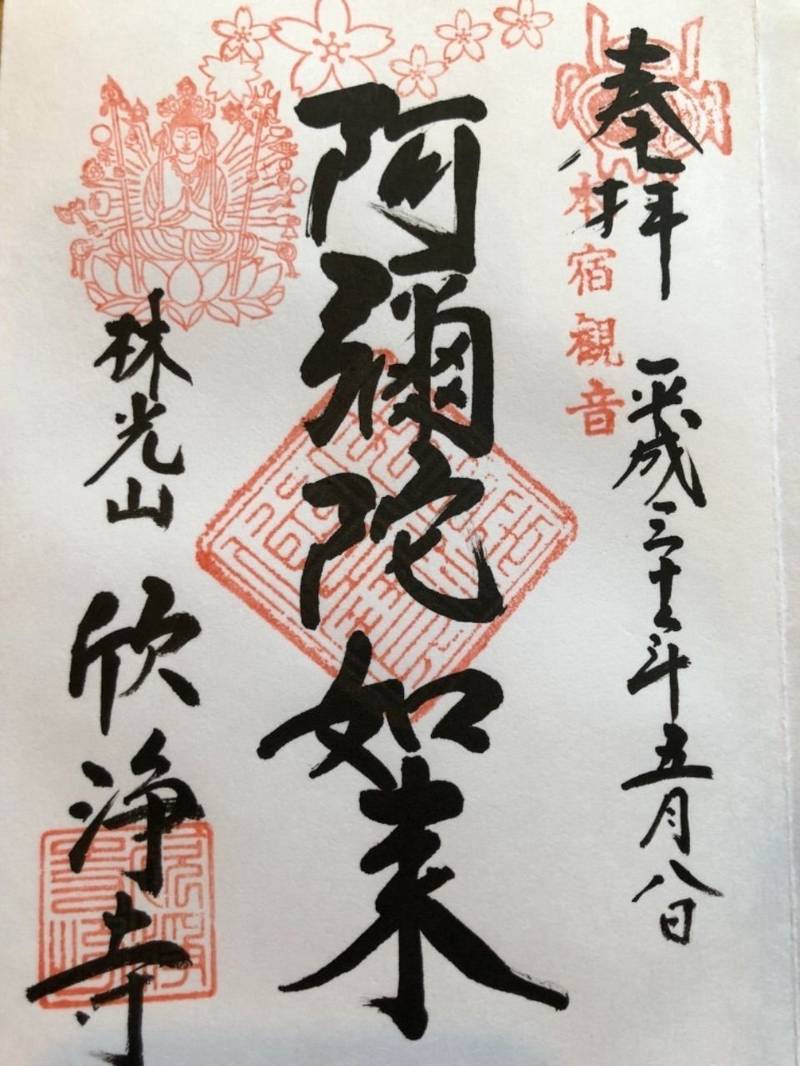 奉拝
本宿観音
平成三十年五月八日
阿彌陀如来
光山 欣浄寺